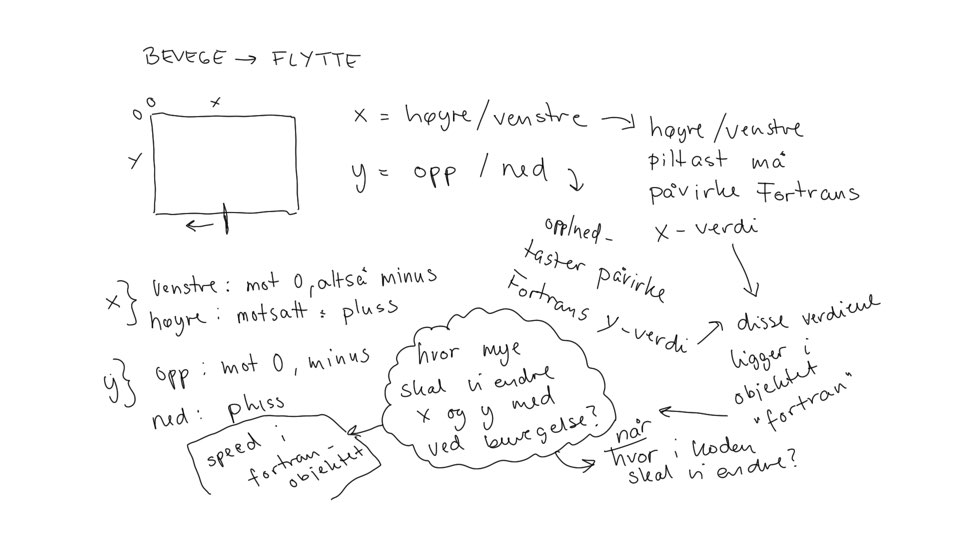 BEVEGE → FLYTTE
0
0
x
y
x = høyre/venstre →
y = opp / ned
høyre/venstre
piltast må
påvirke Fortrans
x-verdi
opp/ned-
taster påvirke
Fortrans y-verdi →
disse verdiene
ligger i
objektet
"fortran"
x} venstre: mot 0, altså minus
høyre: motsatt: pluss
y} opp: mot 0, minus
ned: pluss
hvor mye
skal vi endre
x og y med
ved bevegelse?
speed i
fortran-
objektet
når
hvor i koden
skal vi endre?